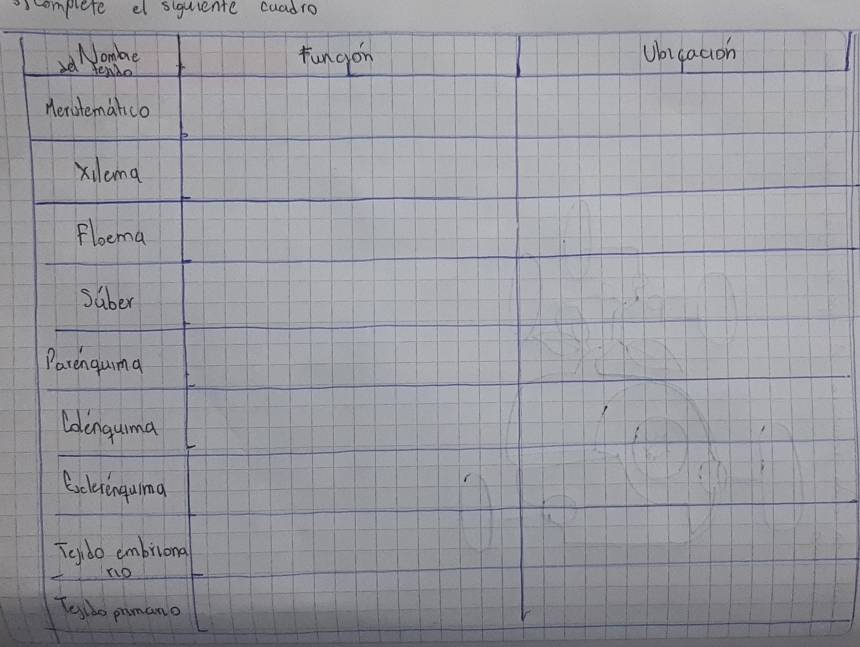 complete el siguiente cuadro
Nombre Función Ubicación
del tejido
Meristemático
Xilema
Floema
Súber
Parénquima
Colénquima
Esclerénquima
Tejido embriona
rio
Tejido primario